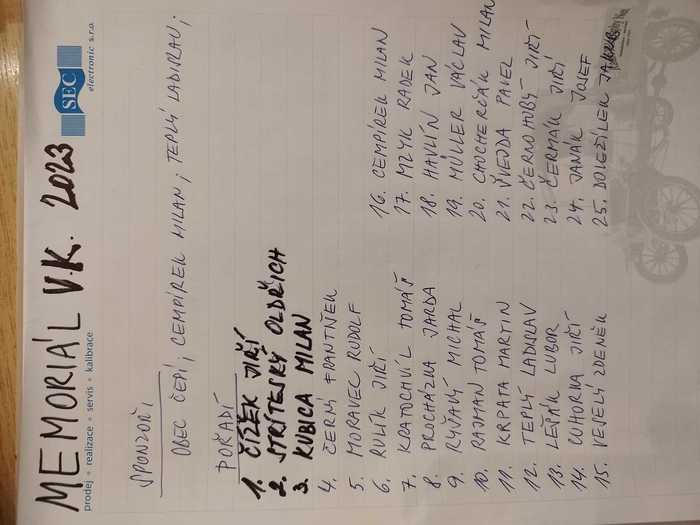 MEMORIÁL V.K. 2023
SEC
electronic s.r.o.
prodej • realizace • servis • kalibrace
SPONZOŘI;
OBEC ČEPÍ; CEMPÍREK MILAN; TEPLÝ LADISLAV;
POŘADÍ
1. ČÍŽEK JIŘÍ
2. STŘÍTESKÝ OLDŘICH
3. KUBICA MILAN
4. ČERNÝ FRANTIŠEK
5. MORAVEC RUDOLF
6. RULÍK JIŘÍ
7. KRATOCHVÍL TOMÁŠ
8. PROCHÁZKA JARDA
9. RYŠAVÝ MICHAL
10. RAJMAN TOMÁŠ
11. KRPATA MARTIN
12. TEPLÝ LADISLAV
13. LEŠÁK LUBOR
14. CUHORKA JIŘÍ
15. VESELÝ ZDENĚK
16. CEMPÍREK MILAN
17. MZYK RADEK
18. HAVLÍN JAN
19. MÜLLER VÁCLAV
20. CHOCHERČÁK MILAN
21. ŠVEJDA PAVEL
22. ČERNOHUBÝ JIŘÍ
23. ČERMÁK JIŘÍ
24. JANÁK JOSEF
25. DOLEŽÍLEK